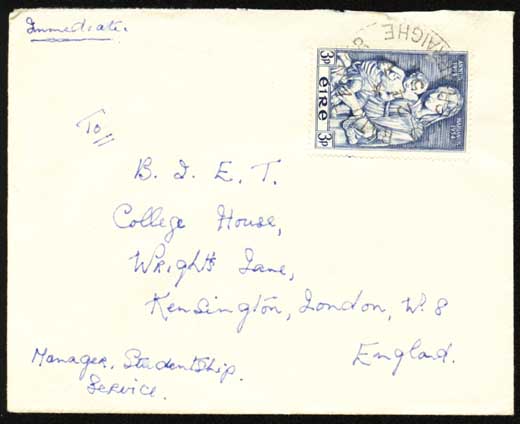 Immediate.
3p
éire
3p
To,,
B. I. E. T.
College House,
Wright's Lane,
Kensington, London, W. 8
England.
Manager, Studentship
Service.